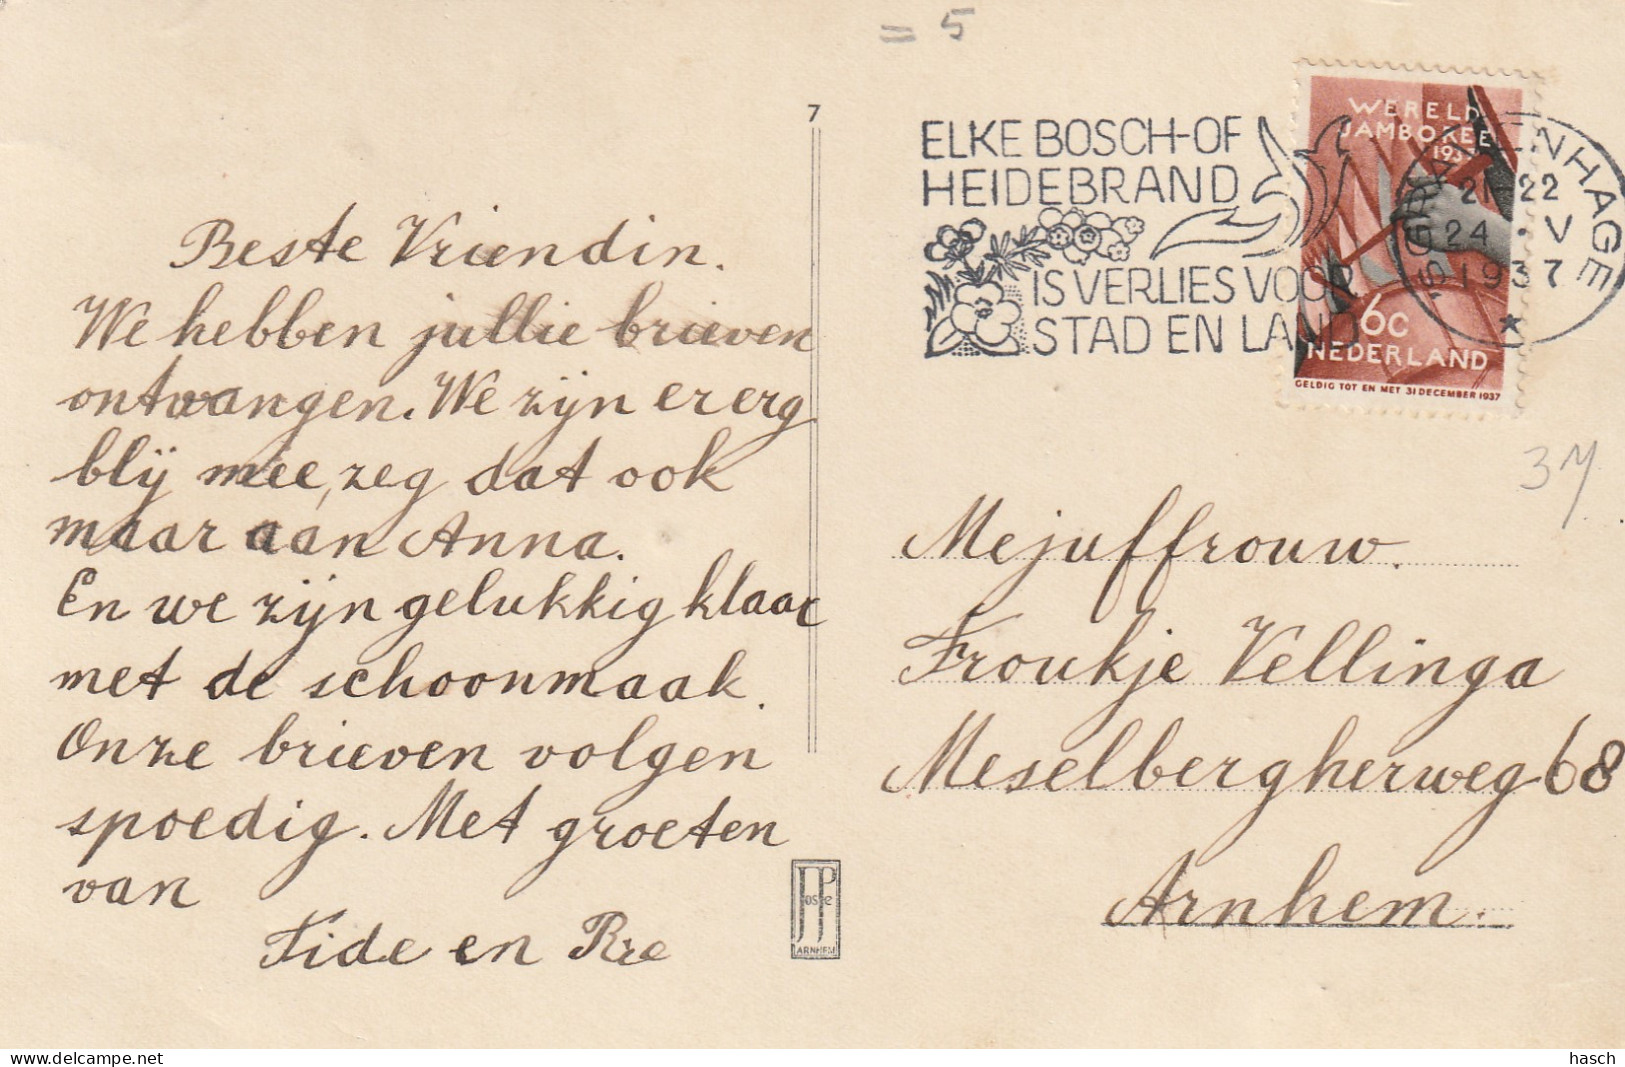 = 5
7
ELKE BOSCH-OF
HEIDEBRAND
IS VERLIES VOOR
STAD EN LAND
WERELD
JAMBOREE
1937
6c
NEDERLAND
GELDIG TOT EN MET 31 DECEMBER 1937
'SGRAVENHAGE
21-22
24 · V
1937
Beste Vriendin.
We hebben jullie brieven
ontvangen. We zijn er erg
blij mee, zeg dat ook
maar aan Anna.
En we zijn gelukkig klaar
met de schoonmaak.
Onze brieven volgen
spoedig. Met groeten
van
Fide en Rie
Mejuffrouw.
Froukje Vellinga
Meselbergherweg 68
Arnhem.
JosPe
ARNHEM
delcampe.net
hasch